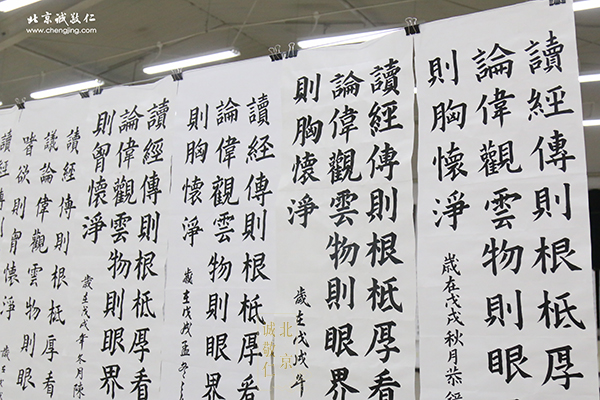 北京诚敬仁
www.chengjing.com
讀經傳則根柢厚
論偉觀雲物則眼
則胸懷淨
歲在戊戌秋月恭
讀經傳則根柢厚看
論偉觀雲物則眼界
則胸懷淨
歲在戊戌年
讀經傳則根柢厚看
論偉觀雲物則眼界
則胸懷淨
歲在戊戌孟冬
讀經傳則根柢厚看
論偉觀雲物則眼界
則胷懷淨
歲在戊戌年冬月陳
讀經傳則根柢厚看
議論偉觀雲物則眼
嗜欲則胷懷淨
歲在戊戌
讀經傳則
北京
诚敬仁